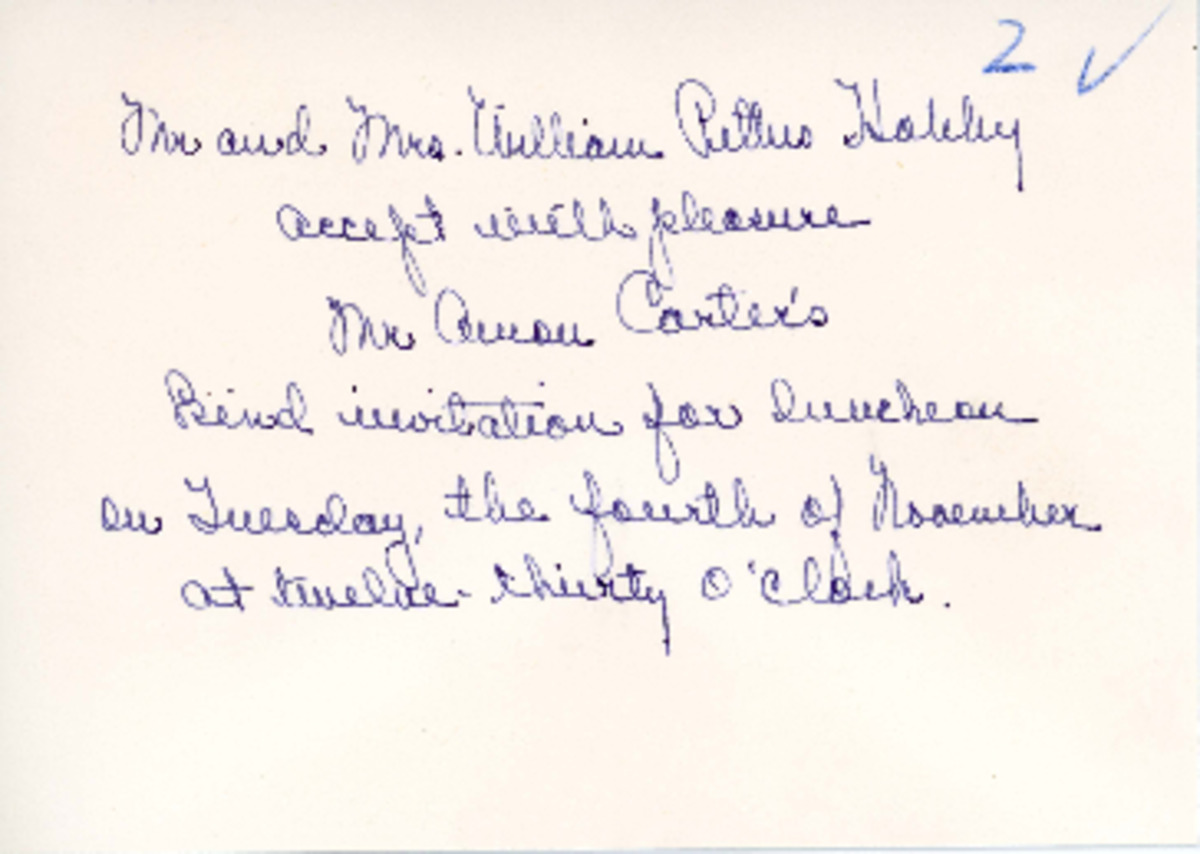 2 ✓
Mr and Mrs. William Pettus Hobby
accept with pleasure
Mr Amon Carter's
kind invitation for luncheon
on Tuesday, the fourth of November
at twelve-thirty o'clock.